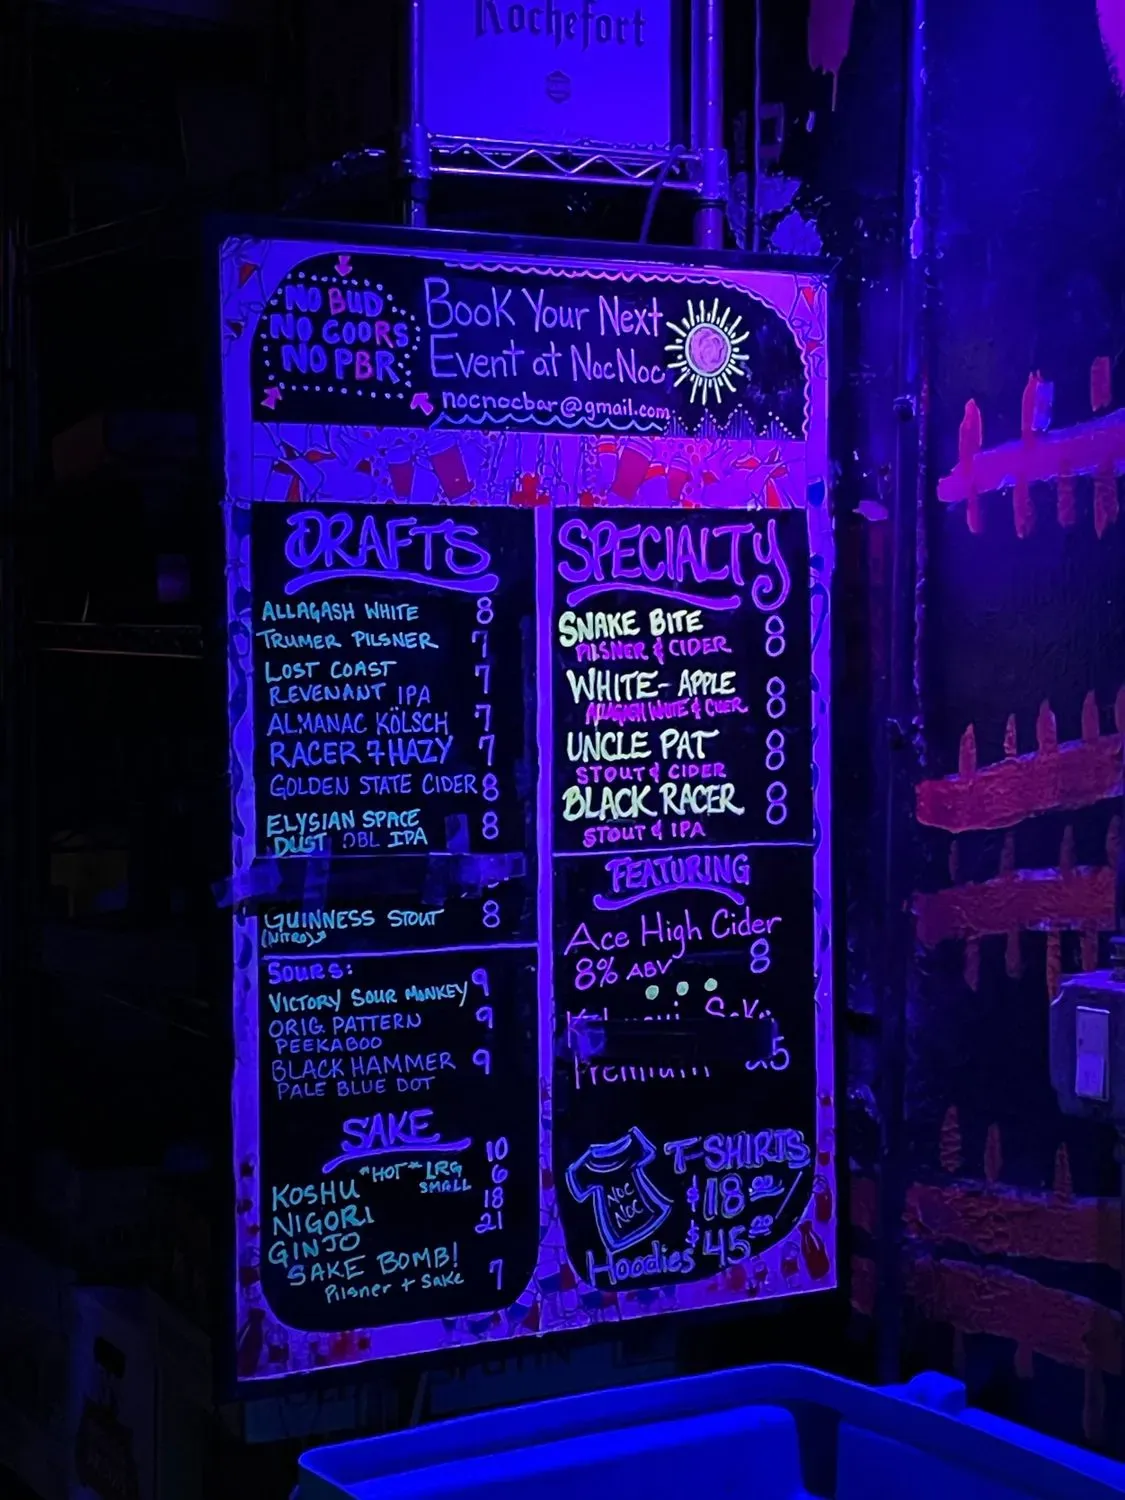 Rochefort
NO BUD
NO COORS
NO PBR
Book Your Next
Event at NocNoc
nocnocbar@gmail.com
DRAFTS
ALLAGASH WHITE 8
TRUMER PILSNER 7
LOST COAST 7
REVENANT IPA
ALMANAC KÖLSCH 7
RACER 7 HAZY 7
GOLDEN STATE CIDER 8
ELYSIAN SPACE 8
DUST DBL IPA
GUINNESS STOUT 8
(NITRO)
SOURS:
VICTORY SOUR MONKEY 9
ORIG. PATTERN 9
PEEKABOO
BLACK HAMMER 9
PALE BLUE DOT
SAKE
"HOT" LRG 10
KOSHU SMALL 6
NIGORI 18
GINJO 21
SAKE BOMB!
Pilsner + Sake 7
SPECIALTY
SNAKE BITE 8
PILSNER & CIDER
WHITE-APPLE 8
ALLAGASH WHITE & CIDER
UNCLE PAT 8
STOUT & CIDER
BLACK RACER 8
STOUT & IPA
FEATURING
Ace High Cider
8% ABV 8
Sake
Premium
T-SHIRTS
NOC
NOC
$18.00
Hoodies $45.00